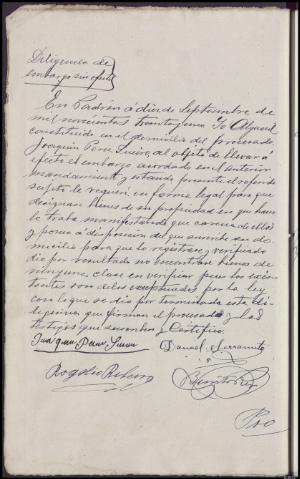 Diligencia de
embargo sin efecto
En Padrón á diez de Septiembre de
mil novecientos treinta y uno Yo Alguacil
constituido en el domicilio del procesado
Joaquin Pena Suira, al objeto de llevar á
efecto el embargo acordado en el anterior
mandamiento, y estando presente el referido
sujeto le requeri en forma legal para que
designara bienes de su propiedad en que hacer
la traba manifestando que carecia de ellos
y ponia á disposicion del que suscribe su do-
micilio para que lo registrase, y verificado
dio por resultado no encontrar bienes de
ninguna clase en verificar pues los exis-
tentes son de los exceptuados por la ley
con lo que se dio por terminada esta dili-
gencia que firman el procesado y los
testigos que suscriben y Certifico
Joaquin Pena
Daniel Serramito
Rogelio
Benito Rey
Pro